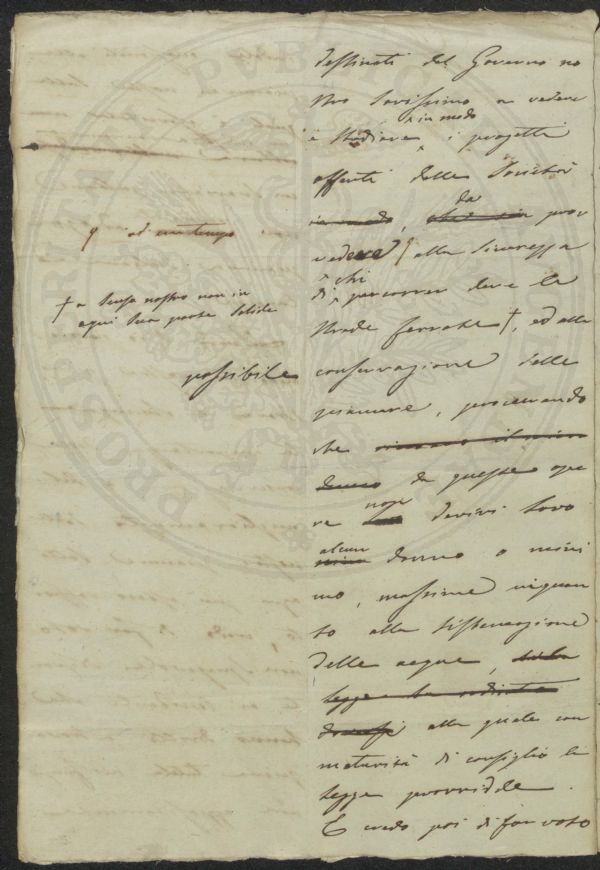 destinati dal Governo no
stro Savissimo a vedere
e studiare i progetti
in modo
offerti dalle Società
da
provvedere
alla sicurezza
di chi percorrer deve le
strade ferrate †, ed alla
conservazione delle
pianure, procurando
che
da queste ope
re non derivi loro
alcun danno o mini
mo, massime in quan
to alla sistemazione
delle acque,
alla quale con
maturità di consiglio la
legge provvide.
E credo poi di far voto
ad un tempo
† a senso nostro non in
ogni sua parte
possibile
PROSPERITAS PVBLICA